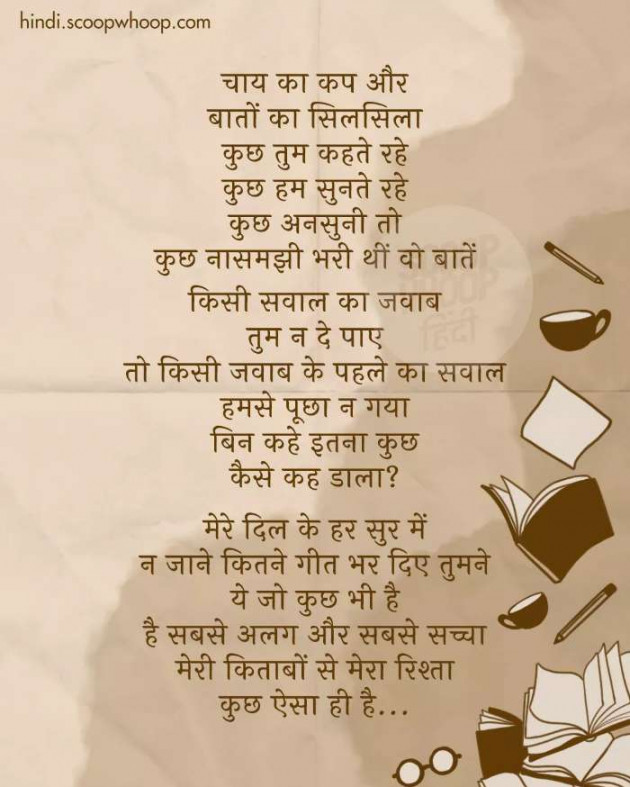 hindi.scoopwhoop.com
चाय का कप और
बातों का सिलसिला
कुछ तुम कहते रहे
कुछ हम सुनते रहे
कुछ अनसुनी तो
कुछ नासमझी भरी थीं वो बातें
किसी सवाल का जवाब
तुम न दे पाए
तो किसी जवाब के पहले का सवाल
हमसे पूछा न गया
बिन कहे इतना कुछ
कैसे कह डाला?
मेरे दिल के हर सुर में
न जाने कितने गीत भर दिए तुमने
ये जो कुछ भी है
है सबसे अलग और सबसे सच्चा
मेरी किताबों से मेरा रिश्ता
कुछ ऐसा ही है...
SCOOP
WHOOP
हिंदी